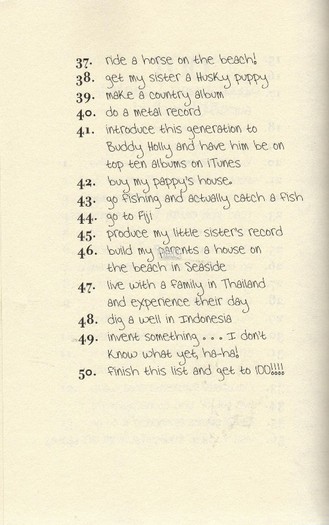 37. ride a horse on the beach!
38. get my sister a Husky puppy
39. make a country album
40. do a metal record
41. introduce this generation to
Buddy Holly and have him be on
top ten albums on iTunes
42. buy my pappy's house.
43. go fishing and actually catch a fish
44. go to Fiji
45. produce my little sister's record
46. build my parents a house on
the beach in Seaside
47. live with a family in Thailand
and experience their day
48. dig a well in Indonesia
49. invent something . . . I don't
know what yet, ha-ha!
50. finish this list and get to 100!!!!